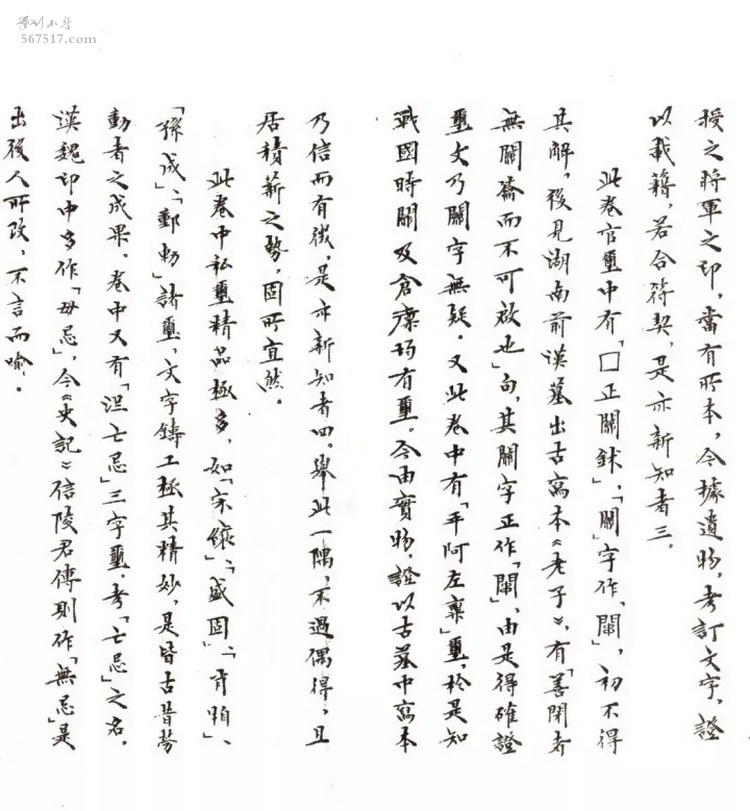 篆刻小站
567517.com
授之將軍之印,當有所本,今據遺物,考訂文字,證
以載籍,若合符契,是亦新知者三.
此卷官璽中有「□正關鉨」,「關」字作「闗」,初不得
其解,後見湖南前漢墓出古寫本《老子》,有「善閉者
無關籥而不可啟也」句,其關字正作「闗」,由是得確證
璽文乃關字無疑.又此卷中有「平阿左稟」璽,於是知
戰國時關及倉廩均有璽.今由實物,證以古墓中寫本
乃信而有徵,是亦新知者四.舉此一隅,不過偶得,且
居積薪之勢,固所宜然.
此卷中私璽精品極多,如「宋𬗌」、「盛固」、「肯」、
「孫成」、「郵」諸璽,文字鑄工極其精妙,是皆古昔勞
動者之成果.卷中又有「亡忌」三字璽,考「亡忌」之名.
漢魏印中多作「毋忌」,今《史記》信陵君傳則作「無忌」是
出後人所改,不言而喻.